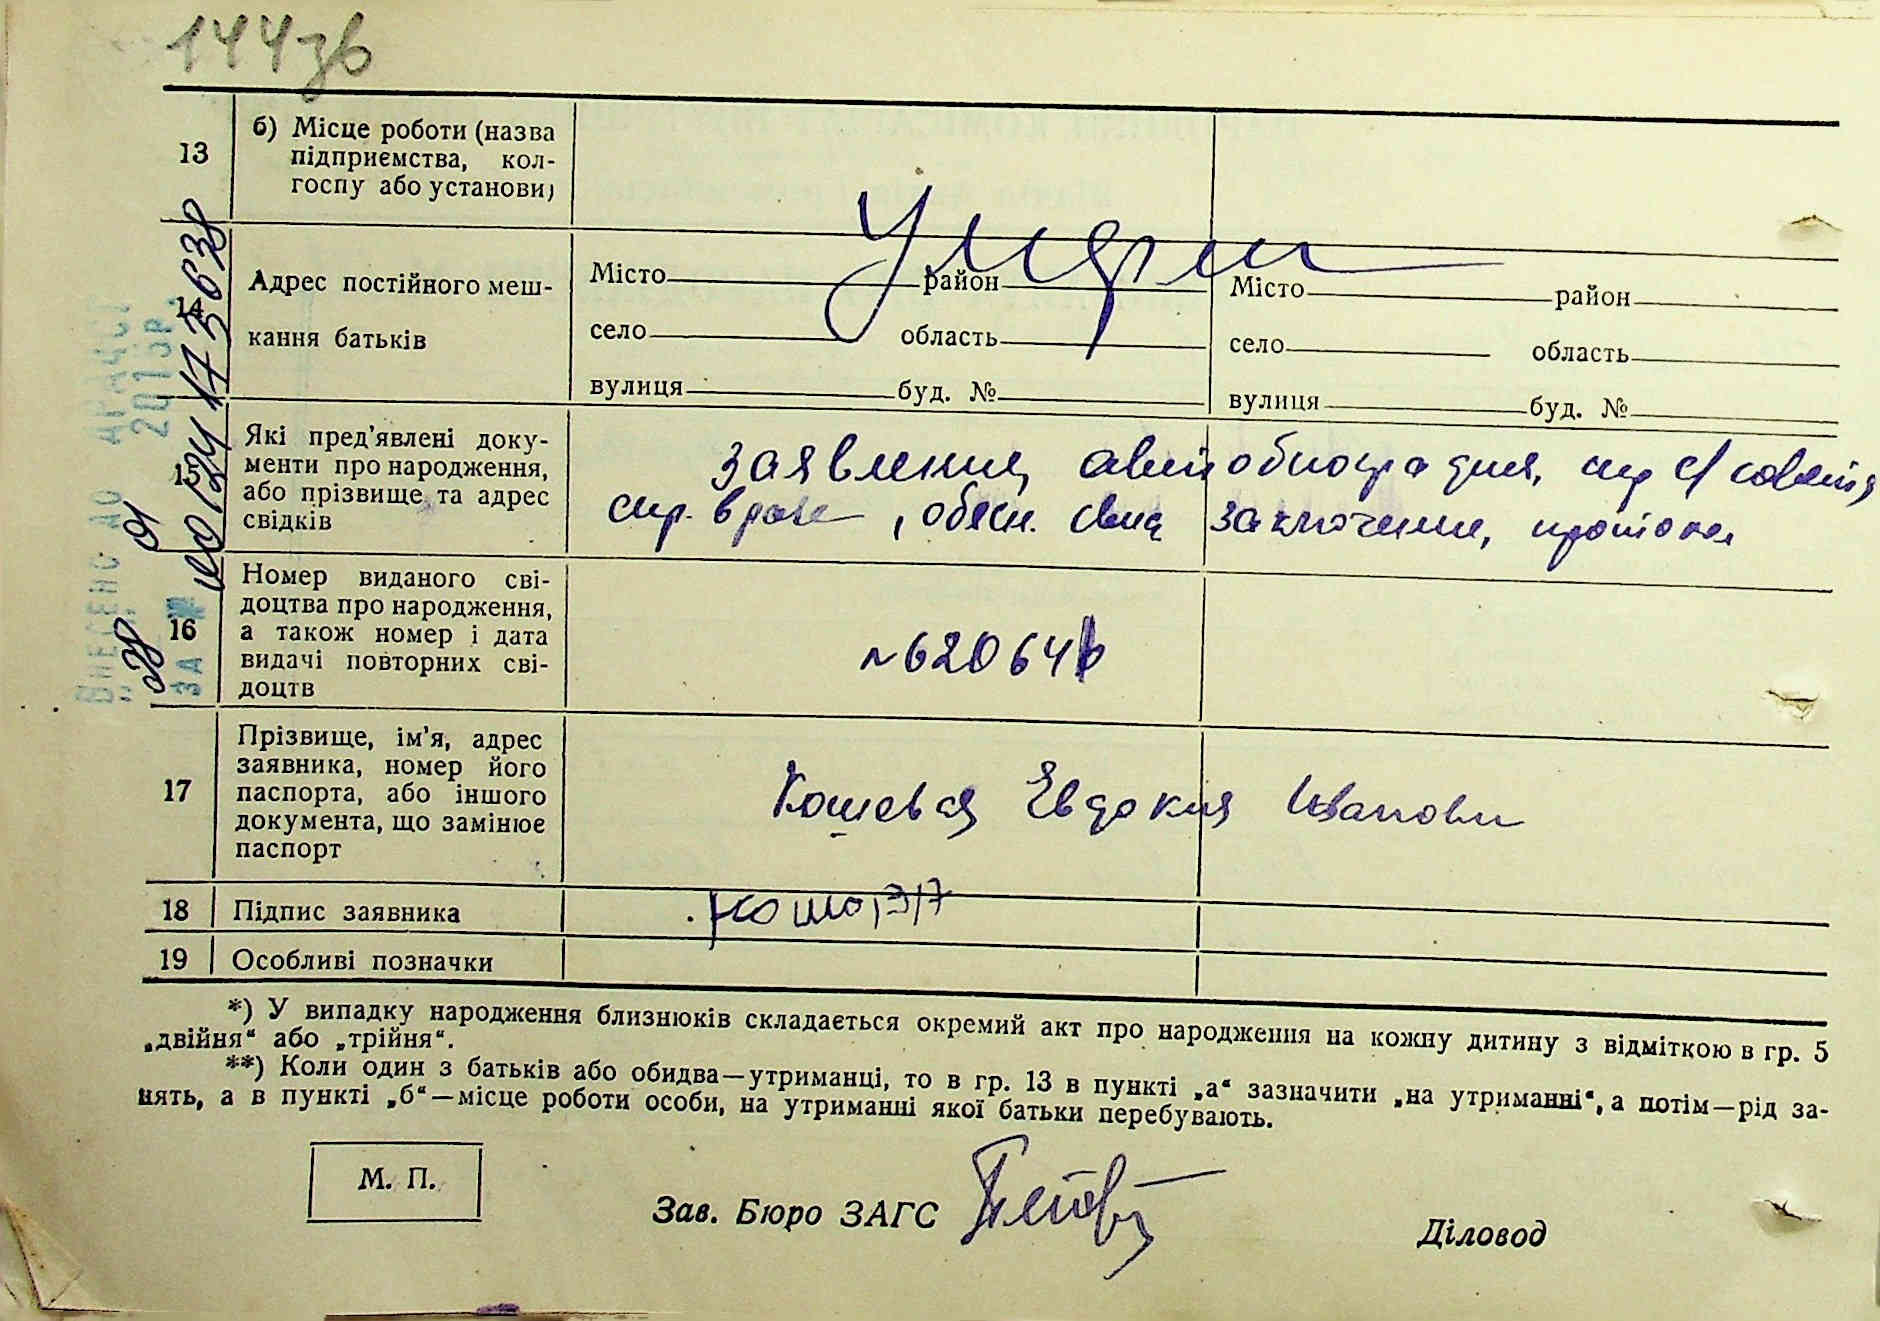 144зв
13
б) Місце роботи (назва
підприємства, кол-
госпу або установи)
14
Адрес постійного меш-
кання батьків
Місто район
село область
вулиця буд. №
Місто район
село область
вулиця буд. №
15
Які пред'явлені доку-
менти про народження,
або прізвище та адрес
свідків
заявление, автобиография,
спр. врача, обясн. заключение, протокол
16
Номер виданого сві-
доцтва про народження,
а також номер і дата
видачі повторних сві-
доцтв
17
Прізвище, ім'я, адрес
заявника, номер його
паспорта, або іншого
документа, що замінює
паспорт
Кошевая Евдокия Ивановн
18
Підпис заявника
19
Особливі позначки
*) У випадку народження близнюків складається окремий акт про народження на кожну дитину з відміткою в гр. 5
„двійня“ або „трійня“.
**) Коли один з батьків або обидва—утриманці, то в гр. 13 в пункті „а“ зазначити „на утриманні“, а потім—рід за-
нять, а в пункті „б“—місце роботи особи, на утриманні якої батьки перебувають.
М. П.
Зав. Бюро ЗАГС
Діловод